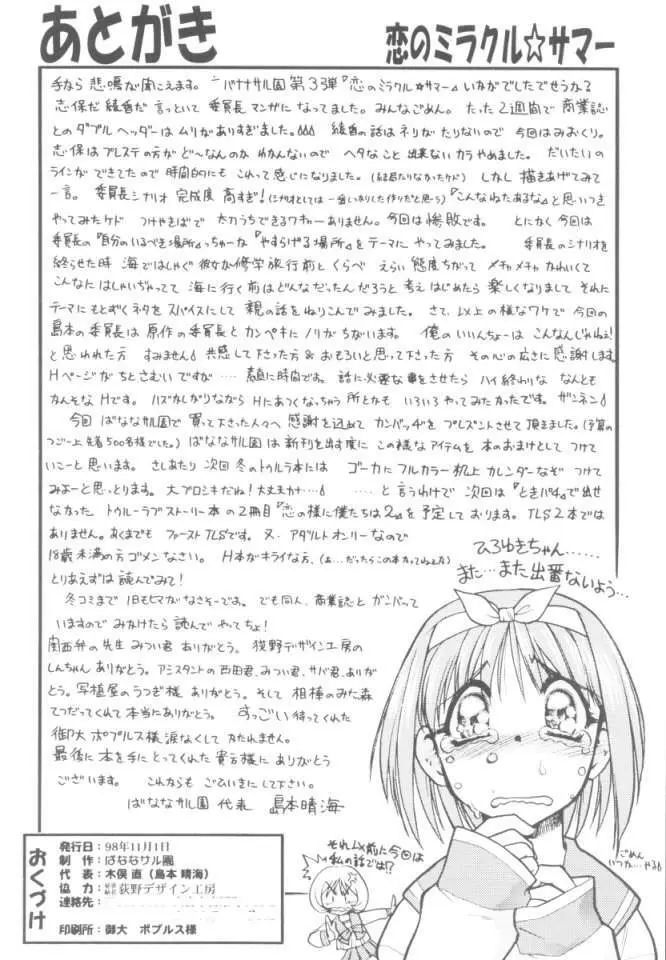 あとがき
恋のミラクル☆サマー
手から悲鳴が聞こえます。バナナサル園第33弾『恋のミラクル☆サマー』いかがでしたでせうか?
志保だ綾香だ言っといて委員長マンガになってました。みんなごめん。たった2週間で商業誌
とのダブルヘッダーはムリがありすぎました。綾香の話はネリがたりないので今回はみおくり。
志保はプレステの方がど〜なんのかわかんないのでヘタなこと出来ないカラやめました。だいたいの
ラインができてたので時間的にもこれって感じになりました。しかし描きあげてみて
一言。委員長シナリオ完成度高すぎ!『こんなねたあるな』と思いつき
やってみたケドつけやきばで太刀うちできるワキャーありません。今回は惨敗です。とにかく今回は
委員長の『自分のいるべき場所』っちゅーか『やすらげる場所』をテーマにやってみました。委員長のシナリオを
終らせた時海ではしゃぐ彼女が修学旅行前とくらべえらい態度ちがってメチャメチャかわいくて
こんなにはしゃいぢゃってて海に行く前はどんなだったんだろうと考えはじめたら楽しくなりましてそれに
テーマにもとずくネタをスパイスにして親の話をねりこんでみました。さて、以上の様なワケで今回の
島本の委員長は原作の委員長とカンペキにノリがちがいます。俺のいいんちょーはこんなんじゃねぇ!
と思われた方すみません 共感して下さった方&おもろいと思って下さった方その心の広さに感謝します。
Hページがちとさむいですが……素直に時間です。話に必要な事をさせたらハイ終わりななんとも
かんそなHです。ハズかしがりながらHにあつくなっちゃう所とかもいろいろやってみたかったです。ザンネン
今回ばななサル園で買って下さった人々へ感謝を込めてカンバッヂをプレゼントさせて頂きました。(予算の
つごー上先着500名様でした。)ばななサル園は新刊を出す度にこの様なアイテムを本のおまけとしてつけて
いこーと思います。さしあたり次回冬のトゥルラブ本にはゴーカにフルカラー机上カレンダーなぞつけて
みよーと思っとります。大ブロシキだね!大丈夫か……と言うわけで次回は『ときパ4』で出せ
なかったトゥルーラブストーリー本の2冊目『恋の様に僕たちは2』を予定しております。TLS2本では
ありません。あくまでもファーストTLSです。又、アダルトオンリーなので
18歳未満の方ゴメンなさい。H本がキライな方、
とりあえずは読んでみて!
冬コミまで1日もヒマがなさそーです。でも同人、商業誌とガンバって
いますのでみかけたら読んでやってちょ!
関西弁の先生みつい君ありがとう。荻野デザイン工房の
しんちゃんありがとう。アシスタントの西田君、みつい君、サバ君、ありが
とう。写植屋のうつぎ様ありがとう。そして相棒のみた森
てつだってくれて本当にありがとう。すっごい待ってくれた
御大ポプルス様涙なくしてかたれません。
最後に本を手にとってくれた貴方様にありがとう
ございます。これからもごひいきにして下さい。
ばななサル園 代表 島本晴海
ひろゆきちゃん……
また…また出番ないよう…
ごめん
いつか…やる
それ以前に今回は
私の話で!?
おくづけ
発行日:98年11月1日
制作:ばななサル園
代表:木俣 直(島本 晴海)
協力:荻野デザイン工房
連絡先:
印刷所:御大 ポプルス様